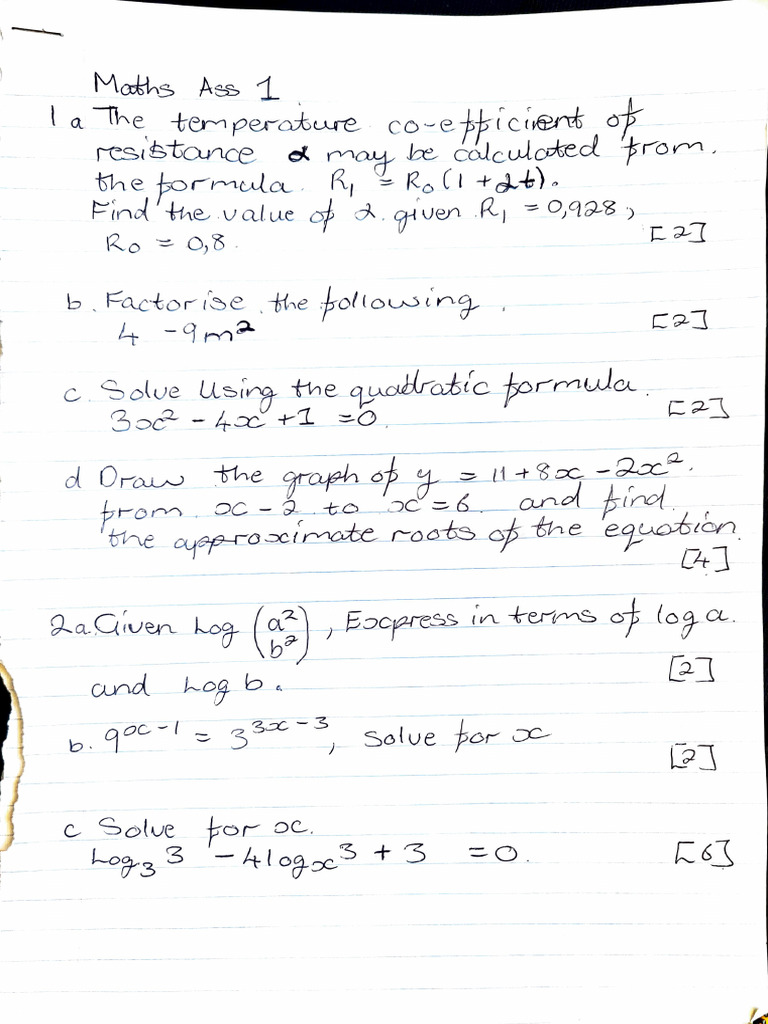 Maths Ass 1
1a The temperature co-efficient of
resistance α may be calculated from.
the formula. R₁ = R₀(1 + αt).
Find the value of α. given R₁ = 0,928,
R₀ = 0,8. [2]
b. Factorise the following.
4 - 9m² [2]
c. Solve Using the quadratic formula.
3x² - 4x + 1 = 0 [2]
d Draw the graph of y = 11 + 8x - 2x².
from x - 2 to x = 6. and find.
the approximate roots of the equation.
[4]
2a. Given Log (a²/b²), Express in terms of log a.
and Log b. [2]
b. 9ˣ⁻¹ = 3³ˣ⁻³, Solve for x
[2]
c Solve for x.
Log₃3 - 4logₓ3 + 3 = 0. [6]